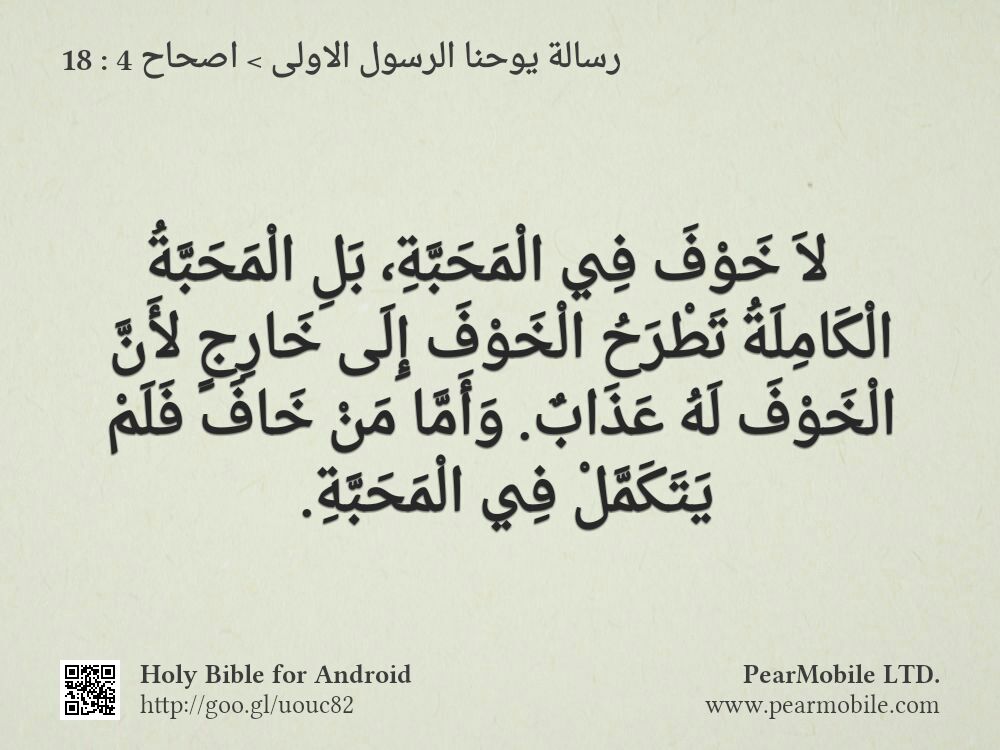 رسالة يوحنا الرسول الاولى > اصحاح 4 : 18
لاَ خَوْفَ فِي الْمَحَبَّةِ، بَلِ الْمَحَبَّةُ
الْكَامِلَةُ تَطْرَحُ الْخَوْفَ إِلَى خَارِجٍ لأَنَّ
الْخَوْفَ لَهُ عَذَابٌ. وَأَمَّا مَنْ خَافَ فَلَمْ
يَتَكَمَّلْ فِي الْمَحَبَّةِ.
Holy Bible for Android
http://goo.gl/uouc82
PearMobile LTD.
www.pearmobile.com